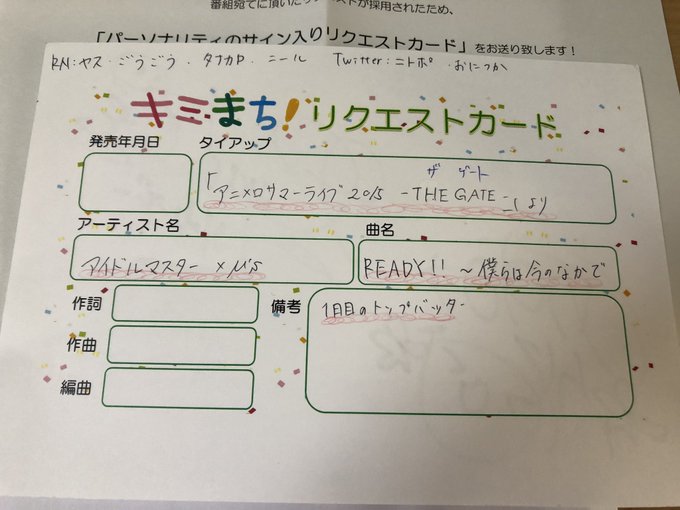 番組宛てに頂いたリクエストが採用されたため、
「パーソナリティのサイン入りリクエストカード」をお送り致します!
RN:ヤス・ごうごう・タナカP・ニール Twitter:ニトポ・おにつか
キミまち!リクエストカード
発売年月日 タイアップ
ザ ゲート
「アニメロサマーライブ2015 -THE GATE-」より
アーティスト名 曲名
アイドルマスター×μ's READY!!~僕らは今のなかで
作詞 備考
1日目のトップバッター
作曲
編曲